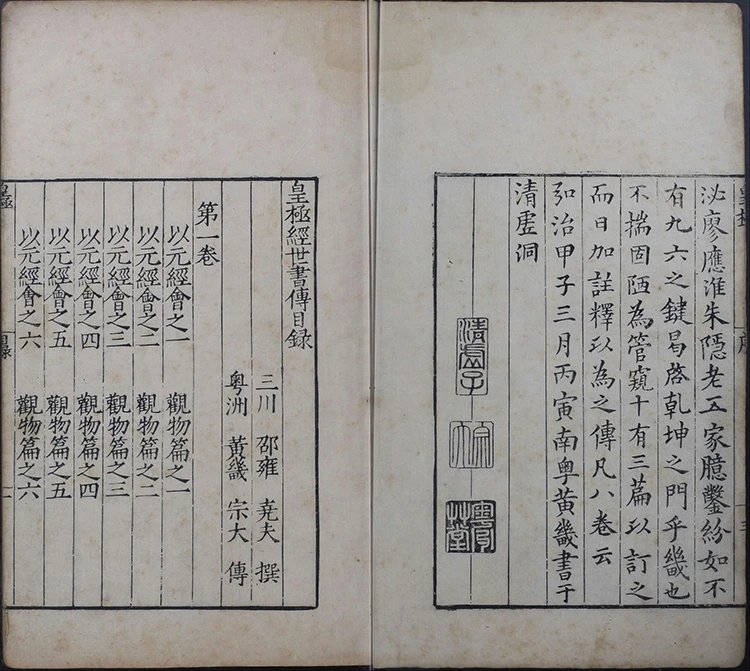 泌廖應淮朱隱老五家臆鑿紛如不
有九六之鍵曷啓乾坤之門乎畿也
不揣固陋為管窺十有三篇以訂之
而日加註釋以為之傳凡八卷云
弘治甲子三月丙寅南粵黃畿書于
清虛洞
清虛子
皇極經世書傳目錄
三川 邵雍 堯夫 撰
粵洲 黃畿 宗大 傳
第一卷
以元經會之一 觀物篇之一
以元經會之二 觀物篇之二
以元經會之三 觀物篇之三
以元經會之四 觀物篇之四
以元經會之五 觀物篇之五
以元經會之六 觀物篇之六